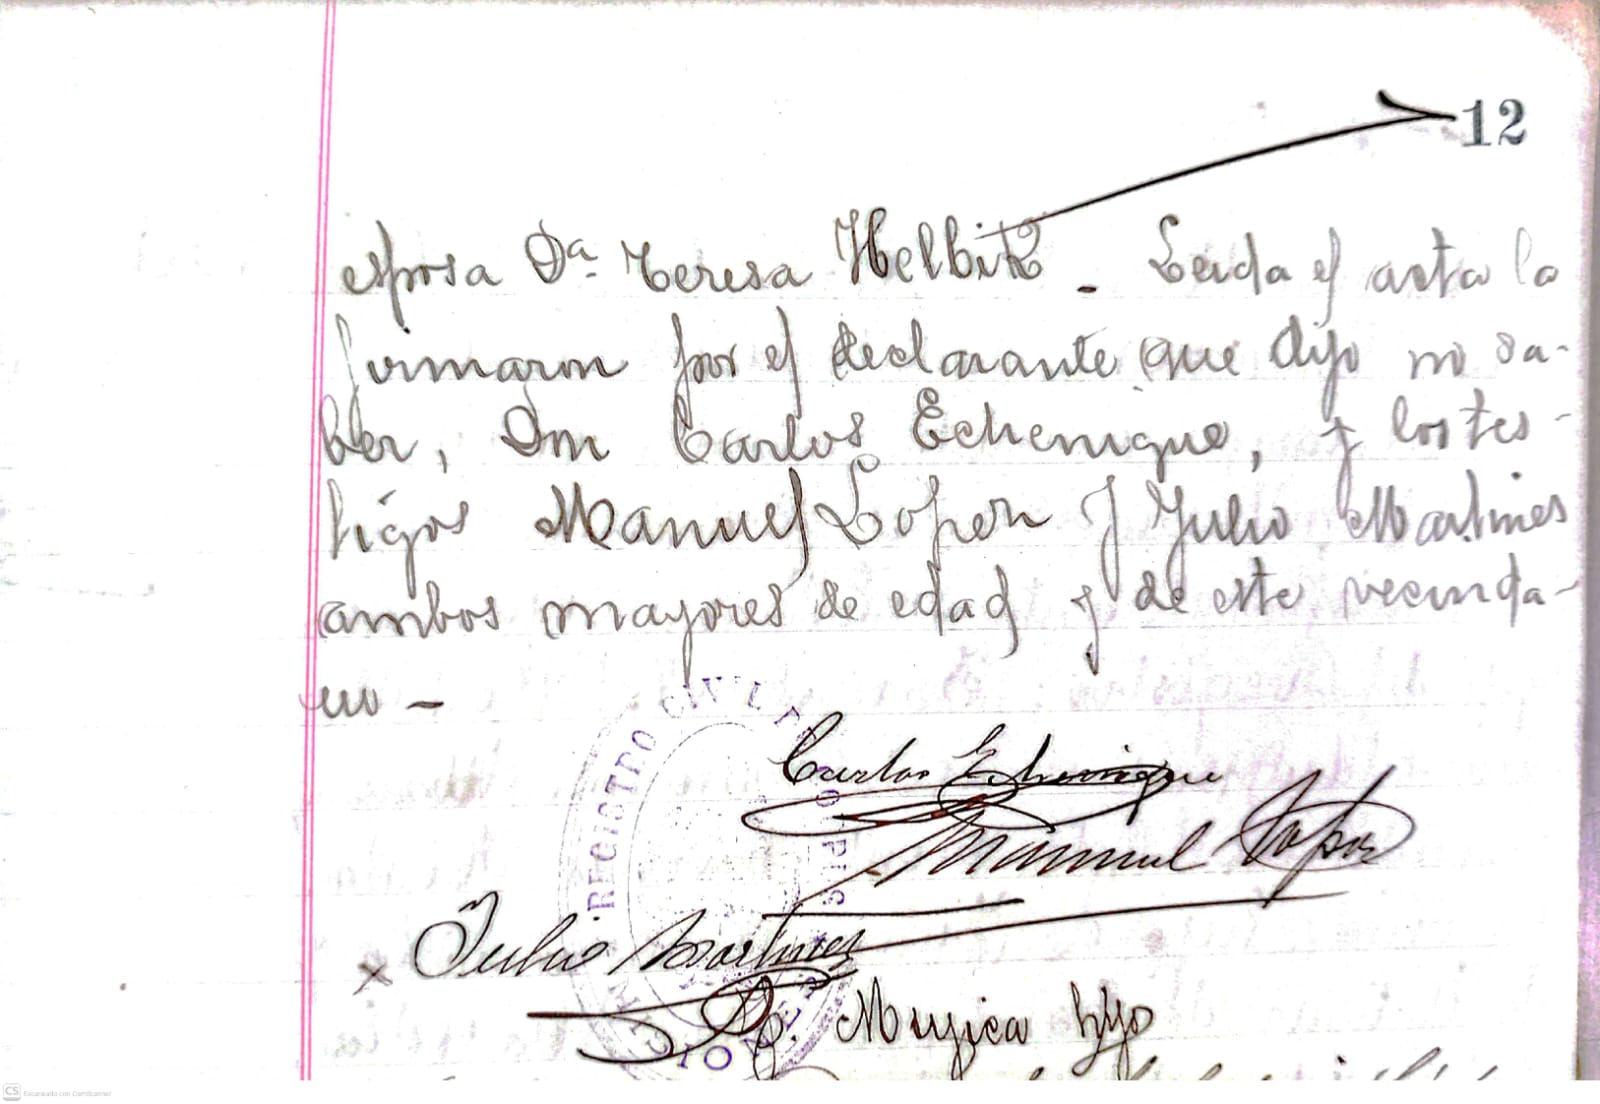 12
esposa Da. Teresa Helbitz - Leida el acta la
firmaron por el declarante que dijo no sa-
ber, Don Carlos Echenique, y los tes-
tigos Manuel Lopez y Julio Martines
ambos mayores de edad y de este vecinda-
rio -
REGISTRO CIVIL
Carlos Echenique
Manuel Lopez
x Julio Martinez
Mujica hijo
CS Escaneado con CamScanner